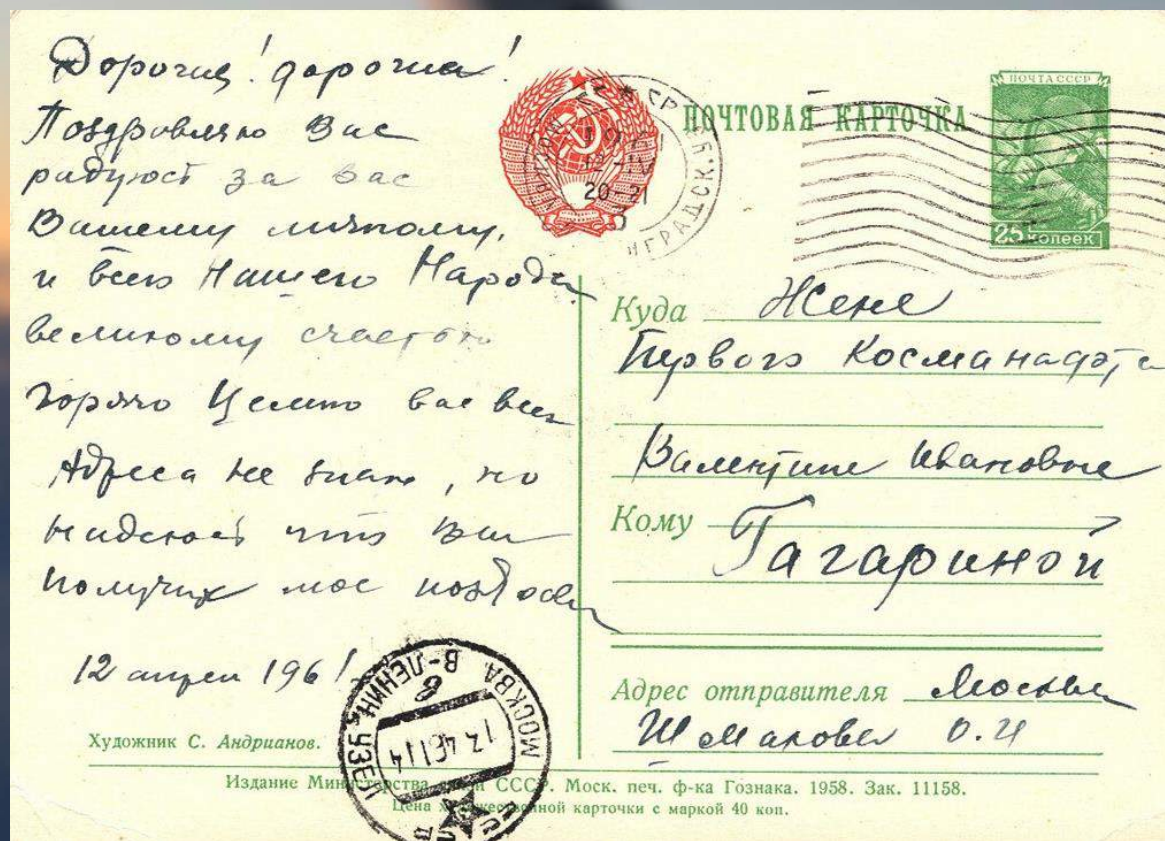 Дорогие! дорогие!
Поздравляю Вас
радуюсь за вас
Вашему личному,
и всего Нашего Народа
великому счастью
горячо Целую вас всех
Адреса не знаю, но
надеюсь что Вы
получих мое
12 апреля 1961
Художник С. Андрианов.
ПОЧТОВАЯ КАРТОЧКА
ПОЧТА СССР
25 копеек
Куда Жене
Первого Косманафта
Валентине Ивановне
Кому Гагариной
Адрес отправителя Москва
О.И
МОСКВА В-ЛЕНИН. УЗЕЛ
Издание Министерства связи СССР. Моск. печ. ф-ка Гознака. 1958. Зак. 11158.
Цена художественной карточки с маркой 40 коп.